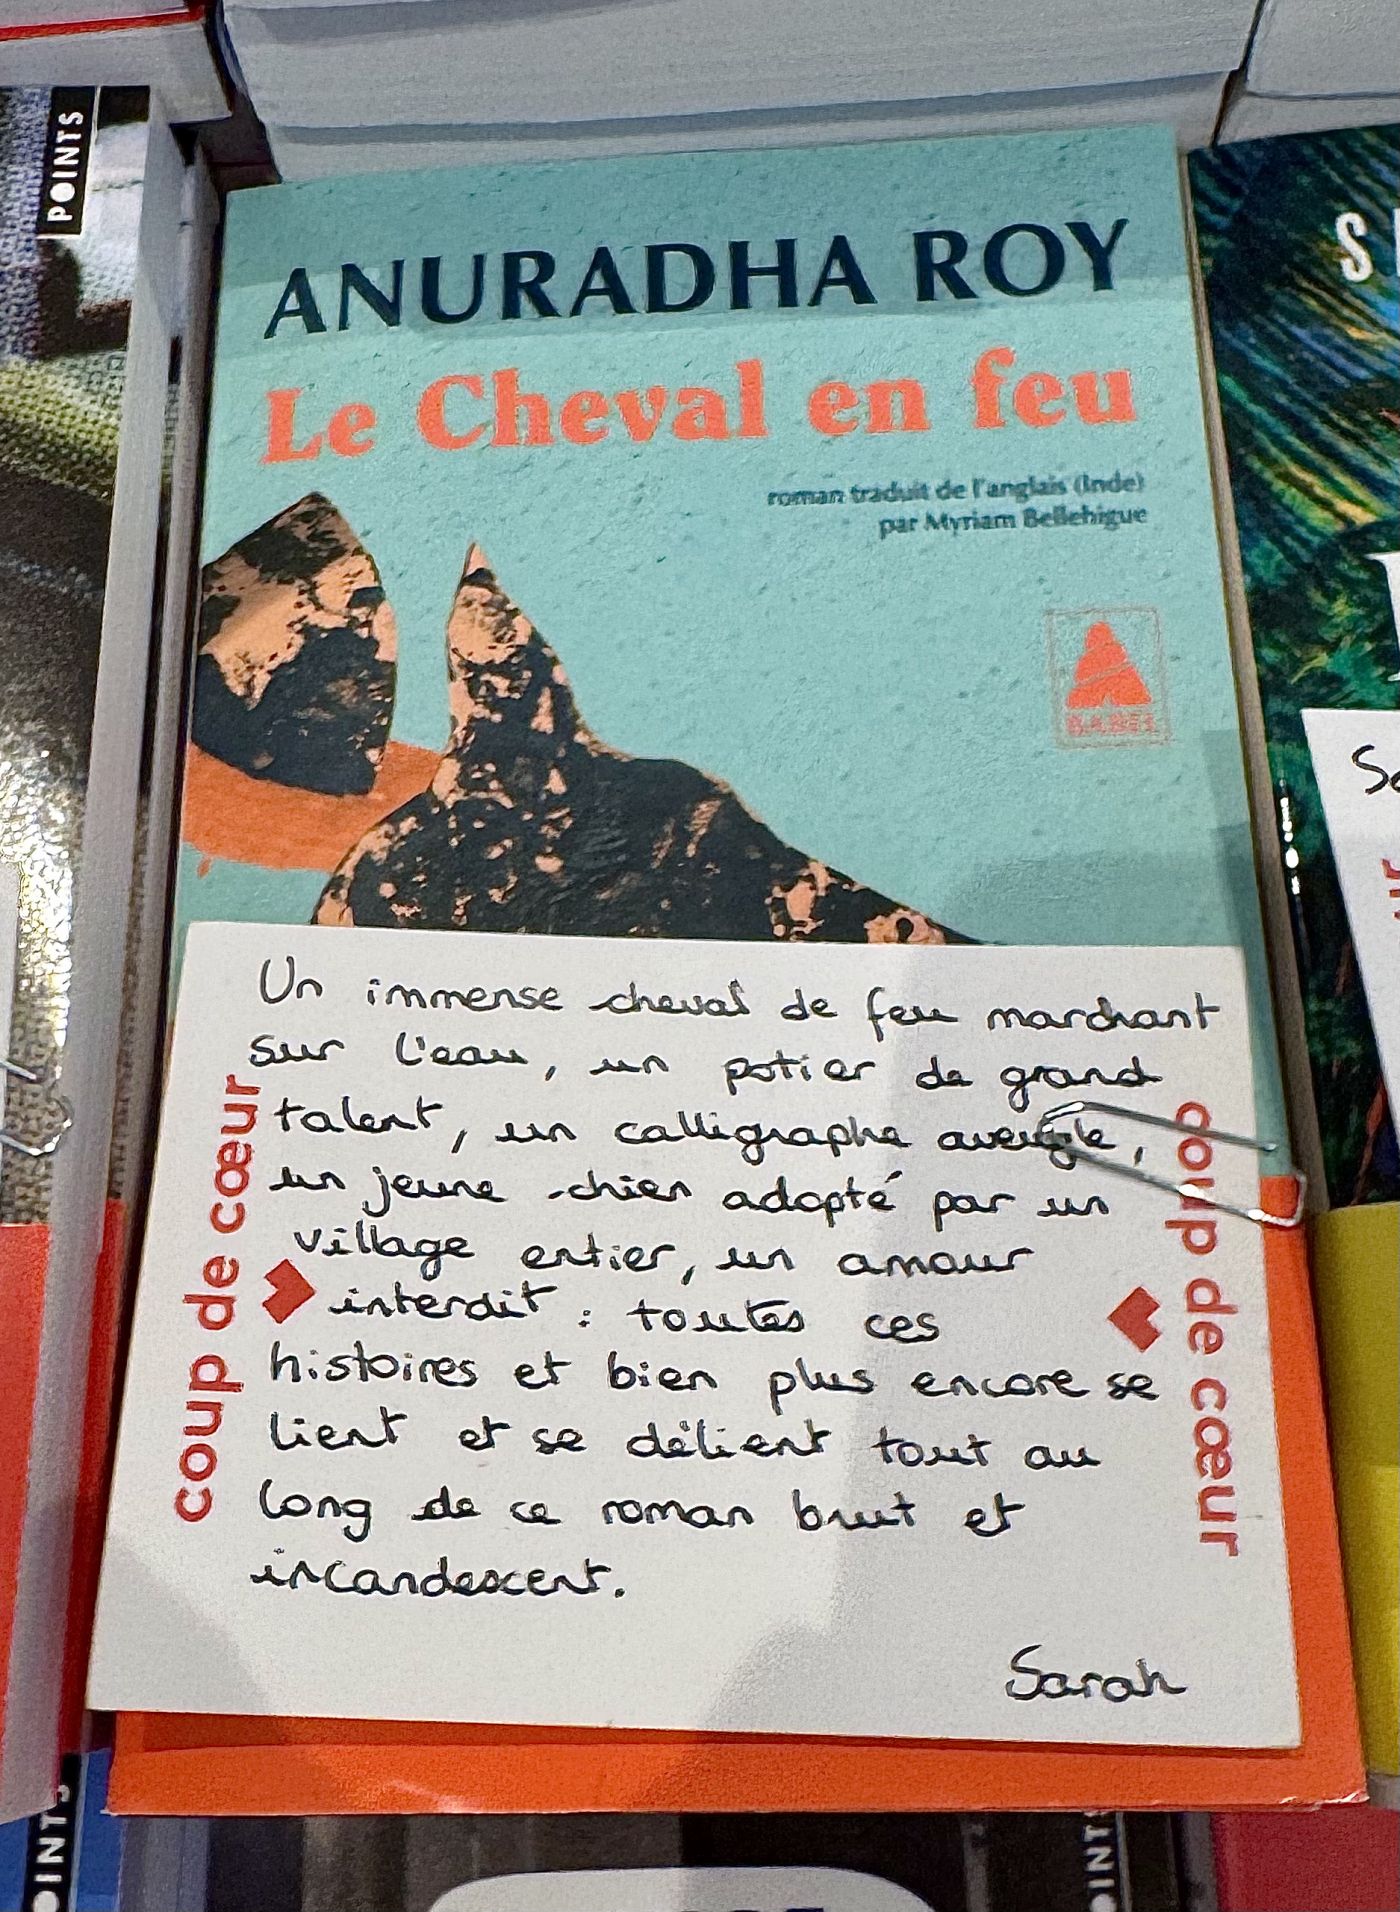 POINTS
ANURADHA ROY
Le Cheval en feu
roman traduit de l'anglais (Inde)
par Myriam Bellehigue
BABEL
Un immense cheval de feu marchant
sur l'eau, un potier de grand
talent, un calligraphe aveugle,
un jeune chien adopté par un
village entier, un amour
interdit : toutes ces
histoires et bien plus encore se
lient et se délient tout au
long de ce roman brut et
incandescent.
Sarah
coup de cœur
coup de cœur
POINTS